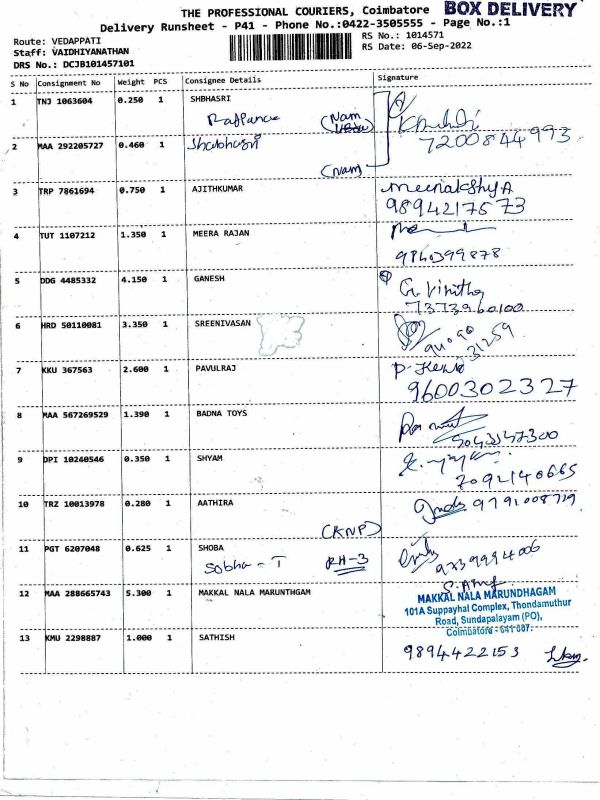 THE PROFESSIONAL COURIERS, Coimbatore BOX DELIVERY
Delivery Runsheet - P41 - Phone No.:0422-3505555 - Page No.:1
Route: VEDAPPATI RS No.: 1014571
Staff: VAIDHIYANATHAN RS Date: 06-Sep-2022
DRS No.: DCJB101457101
S No Consignment No Weight PCS Consignee Details Signature
1 TNJ 1063604 0.250 1 SHBHASRI
(Nam
7200844993
2 MAA 292205727 0.460 1 Shabhasri
(Nam)
3 TRP 7861694 0.750 1 AJITHKUMAR Meenakshy A
9894217573
4 TUT 1107212 1.350 1 MEERA RAJAN
9840399878
5 DDG 4485332 4.150 1 GANESH G. Vinitha
7373960100
6 HRD 50110081 3.350 1 SREENIVASAN
94090
31259
7 KKU 367563 2.600 1 PAVULRAJ
9600302327
8 MAA 567269529 1.390 1 BADNA TOYS
9 DPI 10240546 0.350 1 SHYAM
7092140665
10 TRZ 10013978 0.280 1 AATHIRA 9791008719
(KNP)
11 PGT 6207048 0.625 1 SHOBA
Sobha - T RH-3 9739994006
12 MAA 288665743 5.300 1 MAKKAL NALA MARUNTHGAM MAKKAL NALA MARUNDHAGAM
101A Suppayhal Complex, Thondamuthur
Road, Sundapalayam (PO),
Coimbatore - 641 007.
13 KMU 2298887 1.000 1 SATHISH 9894422153